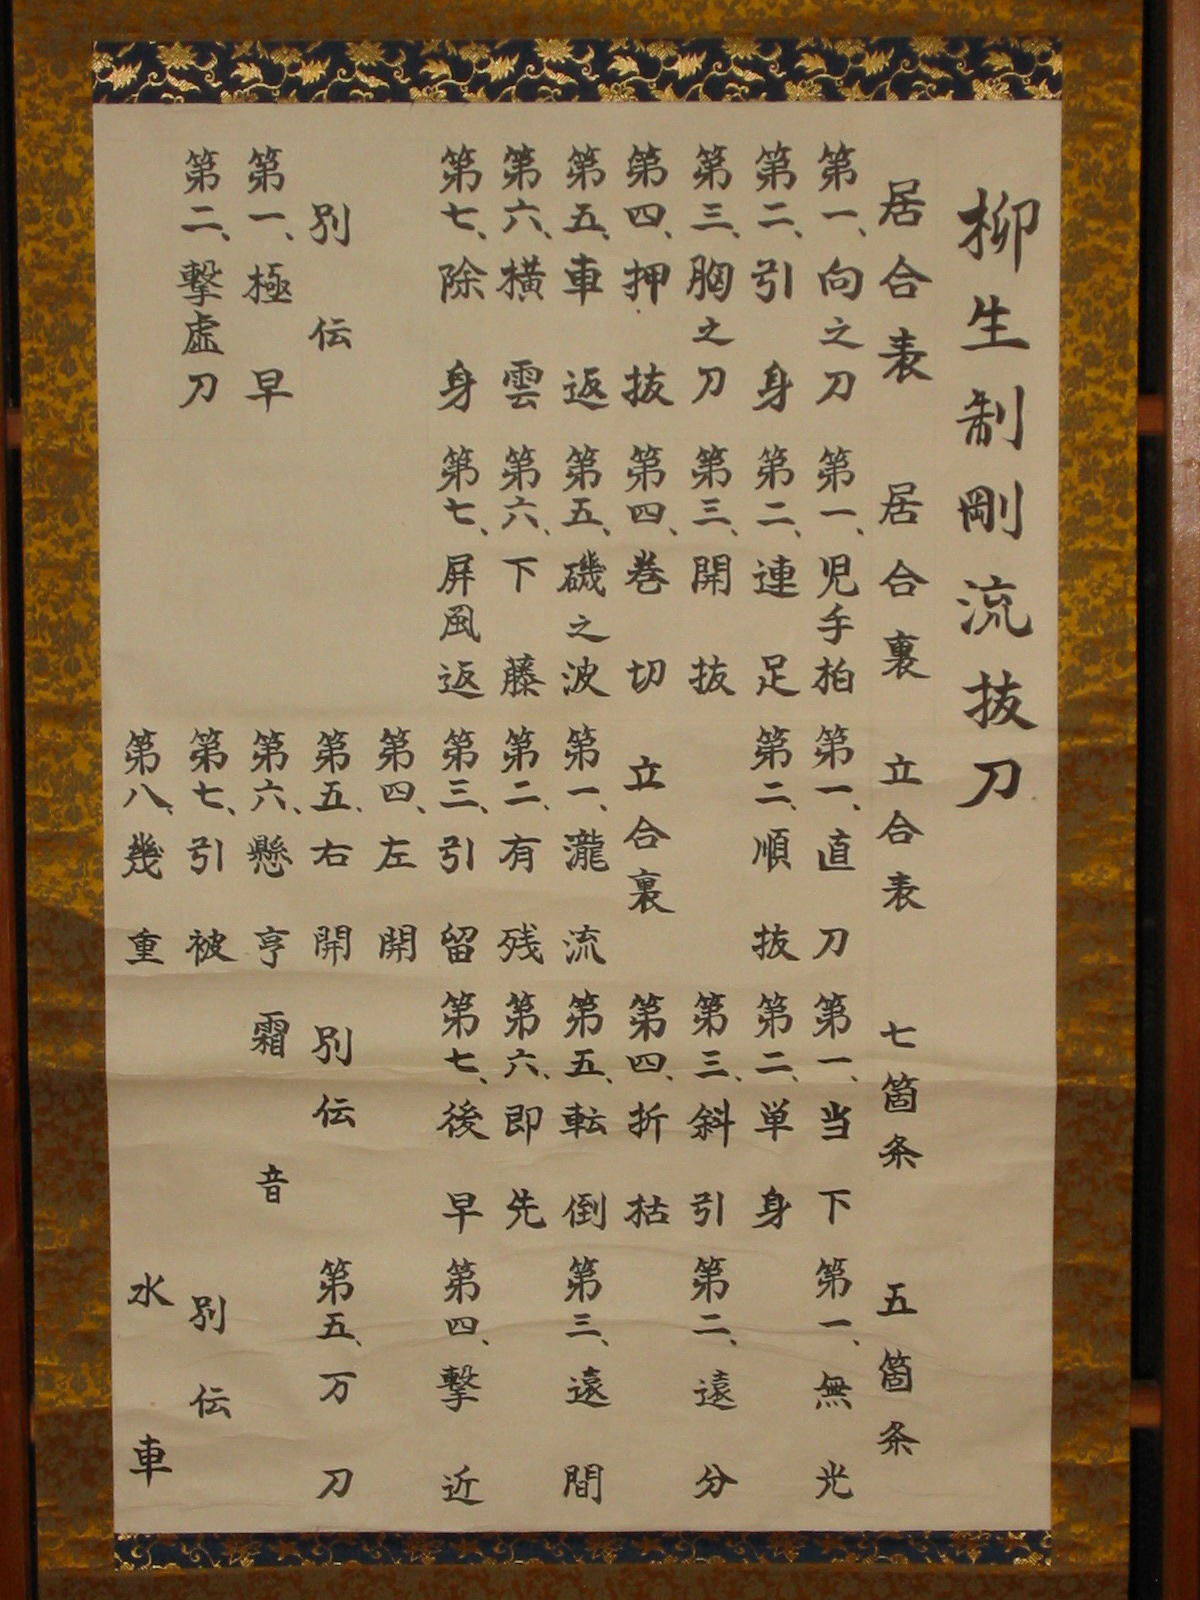 柳生制剛流抜刀
居合表
第一、向之刀
第二、引身
第三、胸之刀
第四、押抜
第五、車返
第六、横雲
第七、除身
別伝
第一、極早
第二、撃虚刀
居合裏
第一、児手柏
第二、連足
第三、開抜
第四、巻切
第五、磯之波
第六、下藤
第七、屏風返
立合表
第一、直刀
第二、順抜
立合裏
第一、瀧流
第二、有残
第三、引留
第四、左開
第五、右開
第六、懸亨
第七、引被
第八、幾重
七箇条
第一、当下
第二、単身
第三、斜引
第四、折枯
第五、転倒
第六、即先
第七、後早
別伝
霜音
五箇条
第一、無光
第二、遠分
第三、遠間
第四、撃近
第五、万刀
別伝
水車